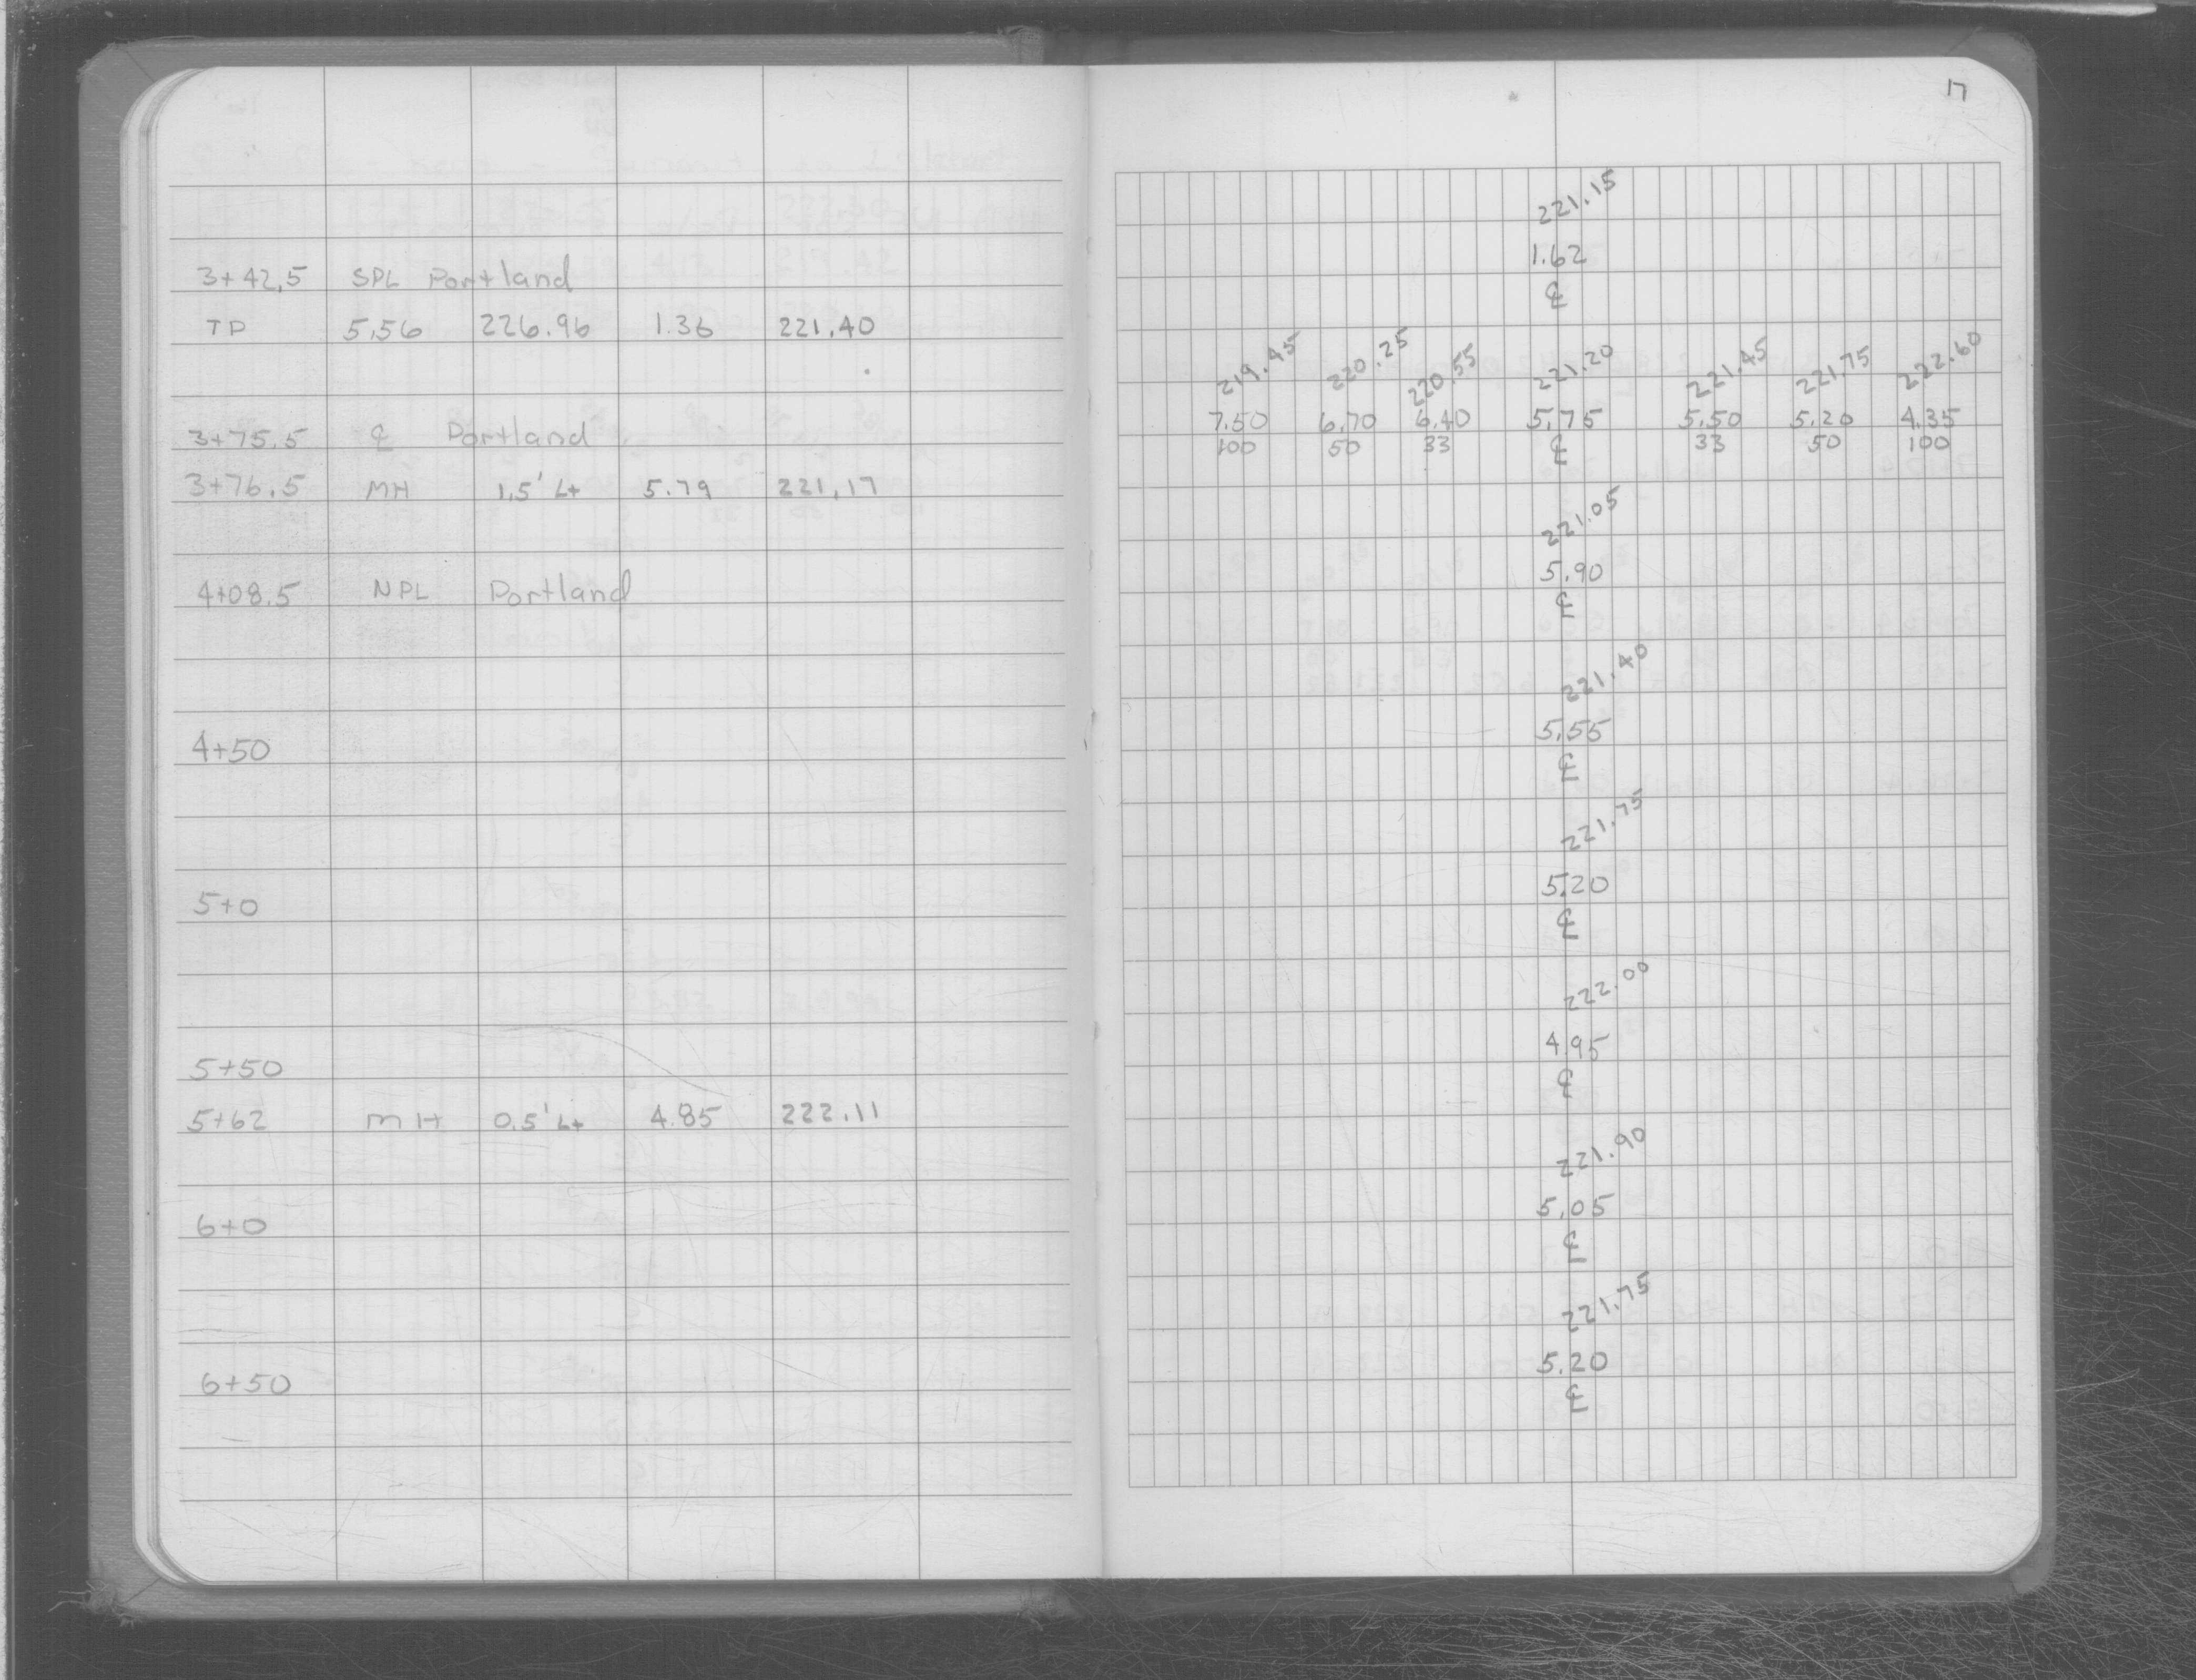 3+42.5 SPL Portland
TP 5.56 226.96 1.36 221.40
3+75.5 ℄ Portland
3+76.5 MH 1.5' Lt 5.79 221.17
4+08.5 NPL Portland
4+50
5+0
5+50
5+62 MH 0.5' Lt 4.85 222.11
6+0
6+50
17
221.15
1.62
℄
219.45 220.25 220.55 221.20 221.45 221.75 222.60
7.50 6.70 6.40 5.75 5.50 5.20 4.35
100 50 33 ℄ 33 50 100
221.05
5.90
℄
221.40
5.55
℄
221.75
5.20
℄
222.00
4.95
℄
221.90
5.05
℄
221.75
5.20
℄